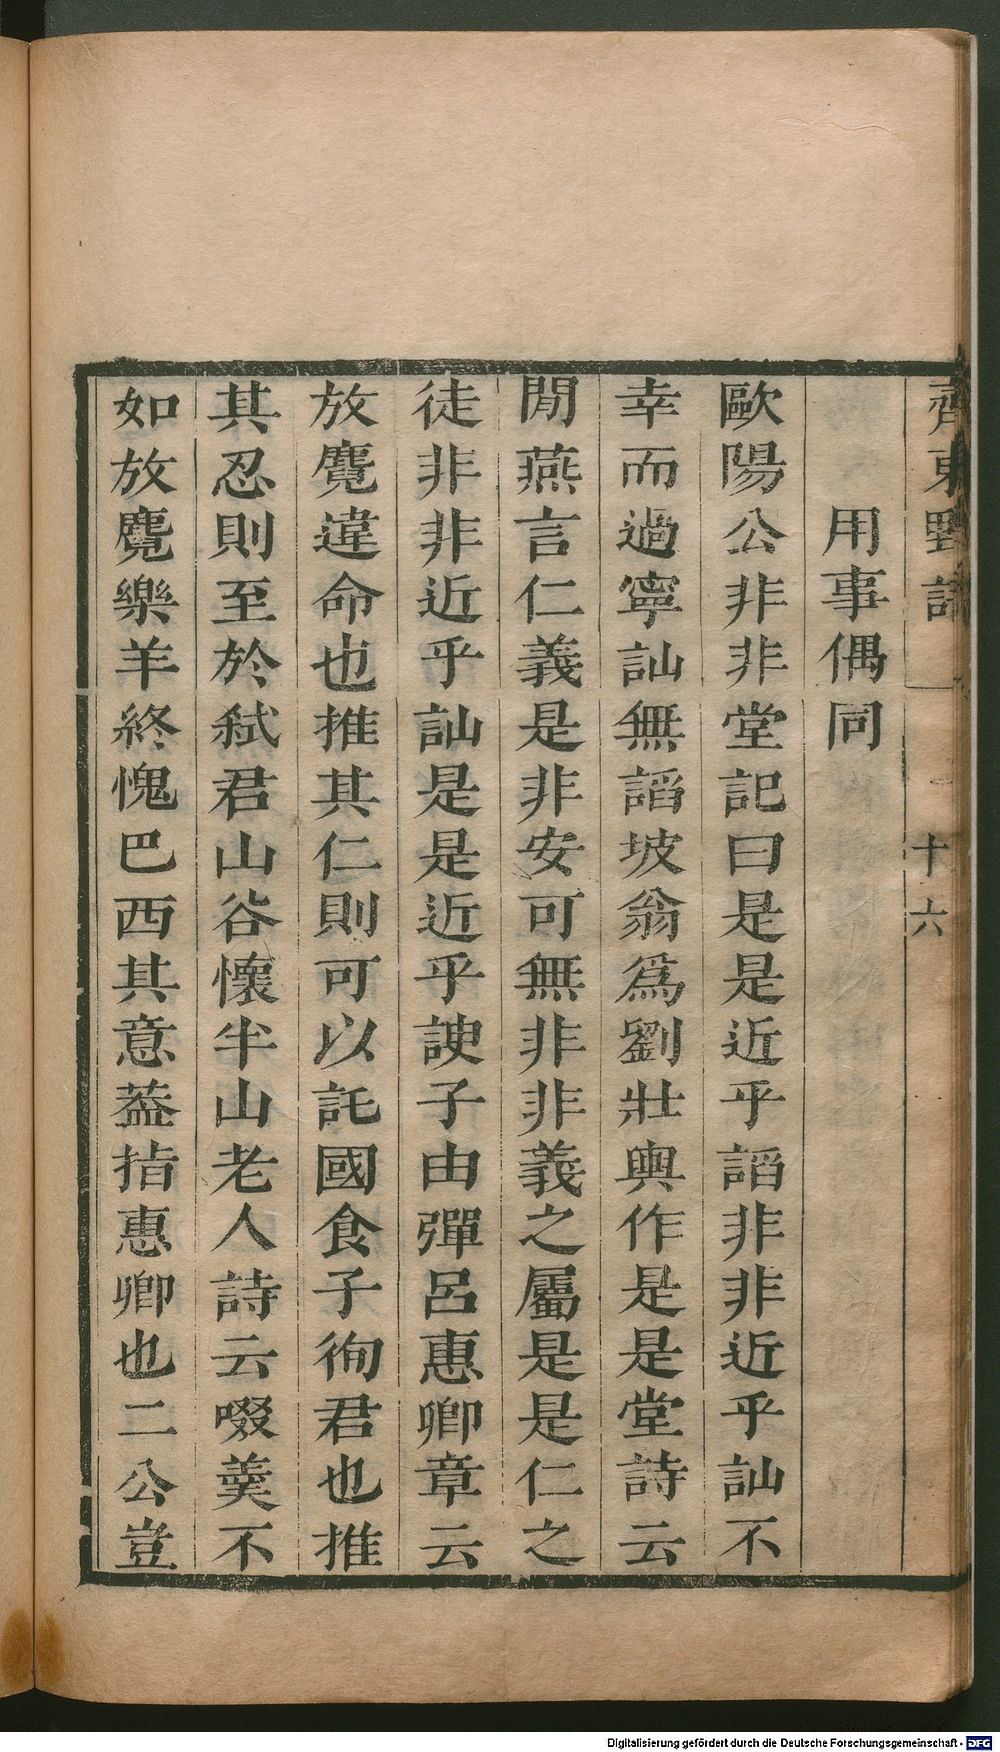 齊東野語
十六
用事偶同
歐陽公非非堂記曰是是近乎諂非非近乎訕不
幸而過寧訕無諂坡翁爲劉壯輿作是是堂詩云
閒燕言仁義是非安可無非非義之屬是是仁之
徒非非近乎訕是是近乎諛子由彈呂惠卿章云
放麑違命也推其仁則可以託國食子徇君也推
其忍則至於弑君山谷懷半山老人詩云啜羹不
如放麑樂羊終愧巴西其意葢指惠卿也二公豈
Digitalisierung gefördert durch die Deutsche Forschungsgemeinschaft - DFG